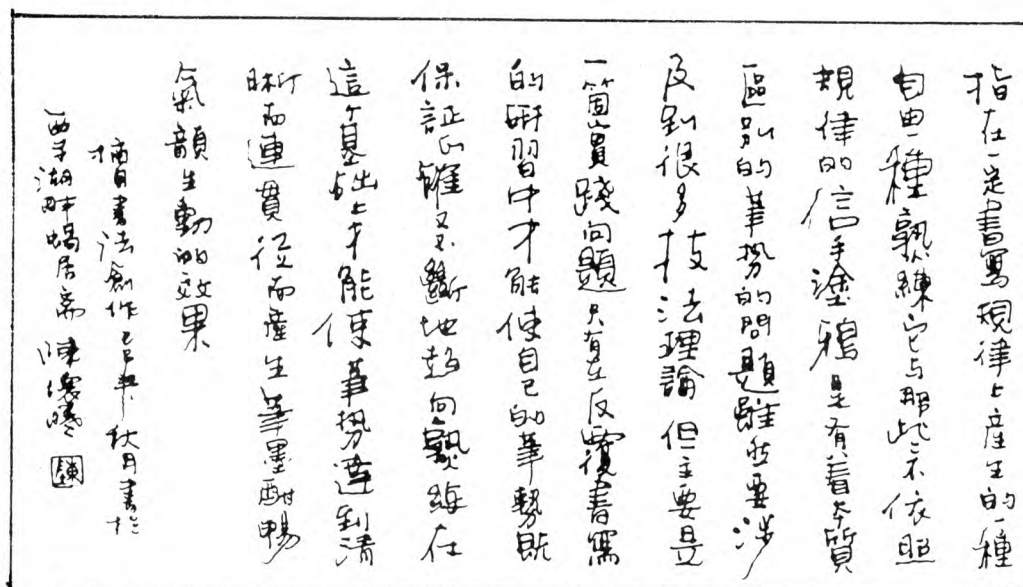 指在一定書寫規律上産生的一種
自由一種熟練它与那些不依照
規律的信手塗鴉是有着本質
區別的筆勢的問題雖然要涉
及到很多技法理論但主要是
一箇實踐问題只有在反覆書寫
的研習中才能使自己的筆勢既
保証正確又不斷地趋向熟練在
這个基础上才能使筆勢達到清
晰而連貫從而産生筆墨酣暢
氣韻生動的效果
摘自書法創作己巳年秋月書於
西子湖畔蝸居斋 陳
陳